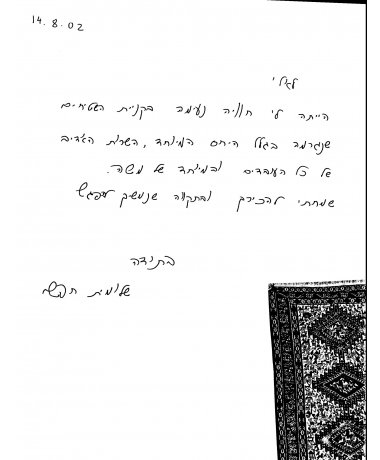 14.8.02
לאלי
הייתה לי חוויה נעימה בקניית השטיחים
שנגרמה בגלל היחס המיוחד, השרות האדיב
של כל העובדים ובמיוחד של משה.
שמחתי להכירך ובתקווה שנמשיך להפגש
בתודה
שלומית